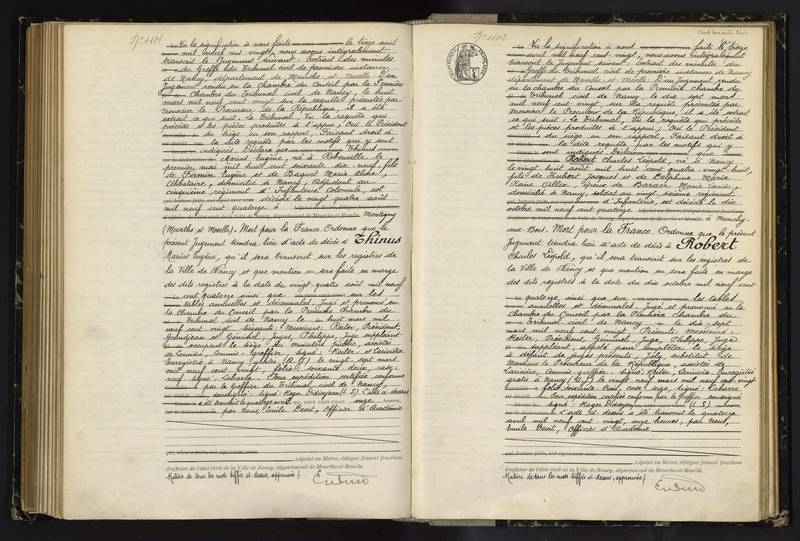 Vu la signification à nous faite le treize avril
mil neuf cent vingt, nous avons intégralement
transcrit le Jugement suivant: Extrait des minutes
du Greffe du Tribunal civil de première instance
de Nancy, département de Meurthe et Moselle. D'un
Jugement rendu en la Chambre du Conseil par la Première
Chambre du Tribunal civil de Nancy, le huit
mars mil neuf cent vingt sur la requête présentée par
Monsieur le Procureur de la République, il a été
extrait ce qui suit: Le Tribunal, Vu la requête qui
précède et les pièces produites à l'appui; Ouï le Président
du siège en son rapport, Faisant droit à
la dite requête par les motifs qui y sont
indiqués; Déclare que Thinus
Marius Eugène, né à
premier mai mil huit cent soixante dix neuf, fils
de Firmin Eugène et de Baquet Marie
célibataire, domicilié à Nancy, Adjudant au
cinquième régiment d'Infanterie coloniale, est
décédé le vingt quatre août
mil neuf cent quatorze à Montigny
(Meurthe et Moselle). Mort pour la France. Ordonne que le
présent Jugement tiendra lieu d'acte de décès à Thinus
Marius Eugène, qu'il sera transcrit sur les registres de
la Ville de Nancy et que mention en sera faite en marge
des dits registres à la date du vingt quatre août mil neuf
cent quatorze ainsi que sur les
tables annuelles et décennales. Jugé et prononcé en
la Chambre du Conseil par la Première Chambre du
Tribunal civil de Nancy le huit mars mil
neuf cent vingt. Siégeant: Messieurs: Président,
Grandjean et Juges, Philippe, Juge suppléant
occupant le siège du ministère public, assistés
de Larivière, Commis-Greffier. Signé: et Larivière.
Enregistré à Nancy, gratis le vingt sept mars
mil neuf cent vingt, folio soixante deux, case
neuf. Signé: Labarre. Pour expédition certifiée conforme
par le Greffier du Tribunal civil de Nancy,
soussigné: Signé: Roger Didiergean (L.S) L'acte ci-dessus
a été transcrit le quatorze avril mil neuf cent vingt, onze heures,
par Nous, Emile Devit, Officier d'Académie
Adjoint au Maire, délégué faisant fonctions
d'officier de l'état civil de la Ville de Nancy, département de Meurthe-et-Moselle.
Rature de tous les mots biffés ci-dessus, approuvée/.
Vu la signification à nous faite le treize
avril mil neuf cent vingt, nous avons intégralement
transcrit le Jugement suivant: Extrait des minutes du
Greffe du Tribunal civil de première instance de Nancy
département de Meurthe et Moselle. D'un Jugement rendu
en la chambre du Conseil par la Première chambre du
Tribunal civil de Nancy, le dix sept mars
mil neuf cent vingt, sur la requête présentée par
Monsieur le Procureur de la République, il a été extrait
ce qui suit: Le Tribunal, Vu la requête qui précède
et les pièces produites à l'appui; Ouï le Président
du siège en son rapport, Faisant droit à
la dite requête par les motifs qui y
sont indiqués: Déclare que
Robert Charles Léopold, né à Nancy
le vingt huit août mil huit cent quatre vingt huit,
fils de Hubert Jacques et de Delphine Marie
époux de Marie Louise,
domicilié à Nancy, soldat au vingt sixième régiment
d'Infanterie, est décédé le dix
octobre mil neuf cent quatorze à Monchy-
aux-Bois. Mort pour la France. Ordonne que le présent
Jugement tiendra lieu d'acte de décès à Robert
Charles Léopold, qu'il sera transcrit sur les registres de
la Ville de Nancy et que mention en sera faite en marge
des dits registres à la date du dix octobre mil neuf cent
quatorze, ainsi que sur les tables
annuelles et décennales. Jugé et prononcé en la
chambre du Conseil par la Première chambre du
Tribunal civil de Nancy le dix sept
mars mil neuf cent vingt. Présents: Messieurs:
Président, Juge, Philippe, Juge
suppléant, appelé pour compléter le siège
à défaut de juges présents, substitut de
Monsieur le Procureur de la République, assistés de
Larivière, commis-greffier. Signé: Larivière. Enregistré
gratis à Nancy le vingt neuf mars mil neuf cent vingt
folio soixante trois, case sept, signé: Labarre.
Pour expédition certifiée conforme par le Greffier, soussigné
signé: Roger Didiergean (L.S)
L'acte ci-dessus a été transcrit le quatorze
avril mil neuf cent vingt, onze heures, par Nous,
Emile Devit, Officier d'Académie
Adjoint au Maire, délégué faisant fonctions
d'officier de l'état civil de la Ville de Nancy, département de Meurthe-et-Moselle.
Rature de tous les mots biffés ci-dessus, approuvée/.